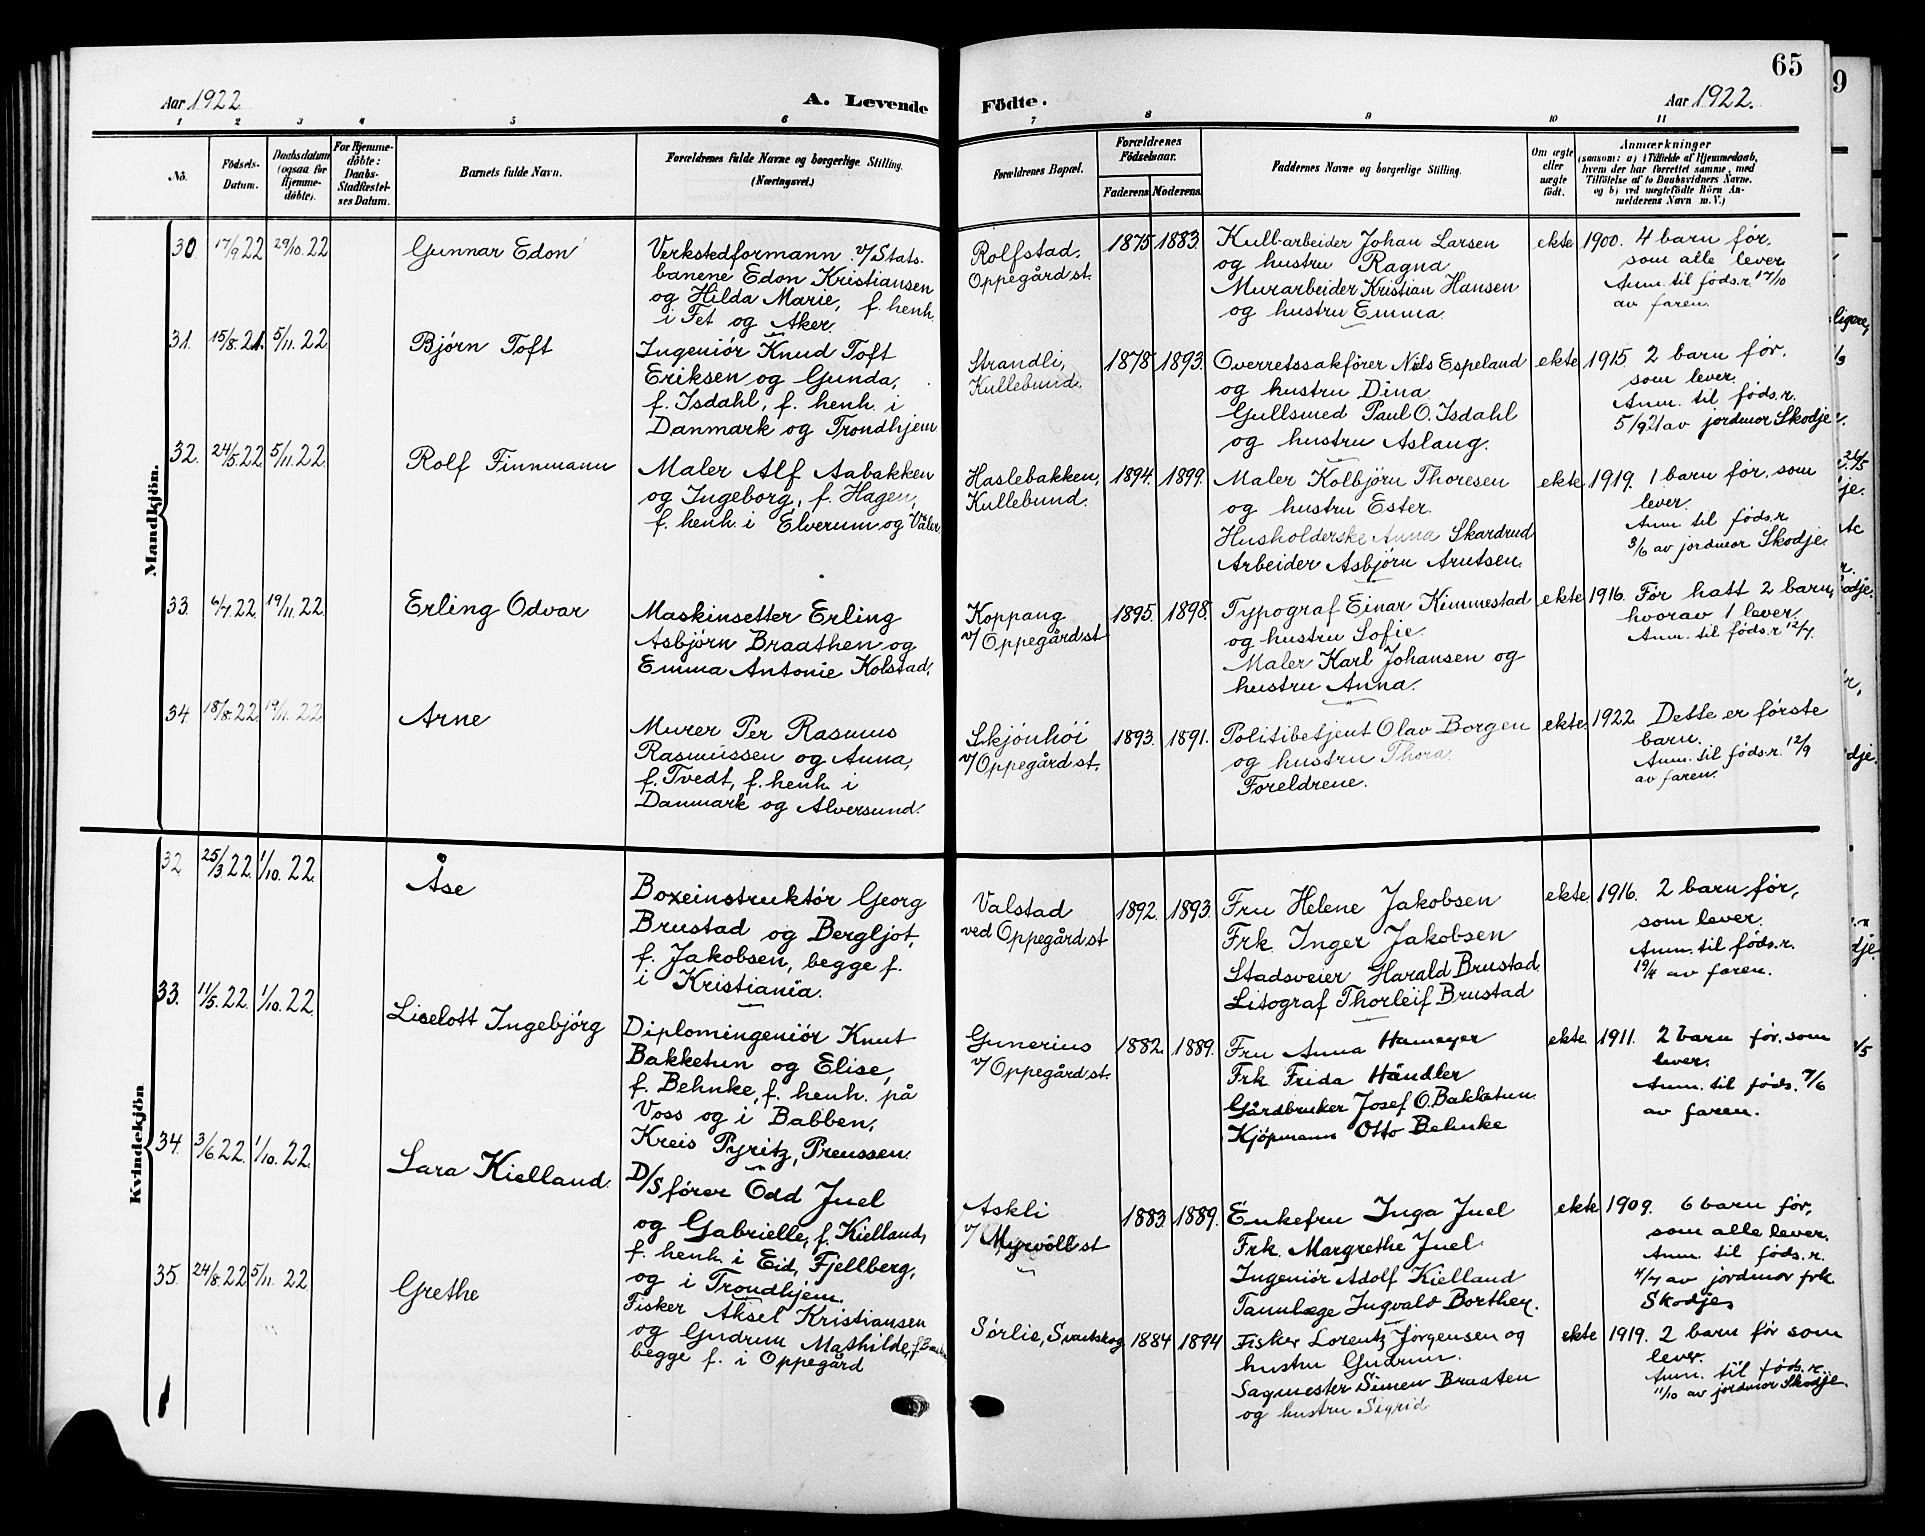 65
Aar 1922
A. Levende
Födte.
Aar 1922.
1 2 3 4 5 6 7 8 9 10 11
No.
Födsels-
Datum.
Daabsdatum
(ogsaa for
Hjemme-
döbte).
For Hjemme-
döbte:
Daabs-
Stadfæstel-
ses Datum.
Barnets fulde Navn.
Forældrenes fulde Navne og borgerlige Stilling.
(Næringsvei.)
Forældrenes Bopæl.
Forældrenes
Födselsaar.
Faderens. Moderens.
Faddernes Navne og borgerlige Stilling.
Om ægte
eller
uægte
födt.
Anmærkninger
(saasom: a) i Tilfælde af Hjemmedaab,
hvem der har forrettet samme, med
Tilföielse af to Daabsvidners Navne,
og b) ved uægtefödte Börn An-
melderens Navn m. V.)
Mandkjön.
30 17/9 22 29/10 22
Gunnar Edon
Verkstedformann v/Stats-
banene Edon Kristiansen
og Hilda Marie, f. henh.
i Fet og Aker.
Rolfstad,
Oppegård st.
1875 1883.
Kullarbeider Johan Larsen
og hustru Ragna
Murarbeider Kristian Hansen
og hustru Emma
ekte
1900. 4 barn før,
som alle lever.
Anm. til føds.r. 17/10
av faren.
31. 15/8 21. 5/11 22
Bjørn Toft
Ingeniör Knud Toft
Eriksen og Gunda,
f. Isdahl, f. henh. i
Danmark og Trondhjem
Strandli,
Kullebund.
1878 1893.
Overretssakfører Nils Espeland
og hustru Dina
Gullsmed Paul O. Isdahl
og hustru Aslaug.
ekte
1915. 2 barn før.
som lever.
Anm. til føds.r.
5/9 21 av jordmor Skodje.
32. 24/5 22 5/11 22.
Rolf Finnmann
Maler Alf Aabakken
og Ingeborg, f. Hagen,
f. henh. i Elverum og Våler
Haslebakken,
Kullebund.
1894. 1899.
Maler Kolbjörn Thoresen
og hustru Ester.
Husholderske Anna Skardrud
Arbeider Asbjørn Arntsen.
ekte
1919. 1 barn før, som
lever.
Anm. til føds.r.
3/6 av jordmor Skodje.
33. 6/7 22. 19/11 22.
Erling Odvar
Maskinsetter Erling
Asbjörn Braathen og
Emma Antonie Kolstad.
Koppang
v/Oppegård st
1895. 1898.
Typograf Einar Kimmestad
og hustru Sofie.
Maler Karl Johansen og
hustru Anna.
ekte
1916. Før hatt 2 barn,
hvorav 1 lever.
Anm. til føds.r 12/7.
34. 18/8 22. 19/11 22
Arne
Murer Per Rasmus
Rasmussen og Anna,
f. Tvedt, f. henh. i
Danmark og Alversund.
Skjönhöi
v/Oppegård st.
1893. 1891.
Politibetjent Olav Borgen
og hustru Thora.
Foreldrene.
ekte.
1922. Dette er første
barn.
Anm. til føds.r. 12/9
av faren.
Kvindekjön
32 25/3 22. 1/10. 22.
Åse
Boxeinstruktör Georg
Brustad og Bergljot,
f. Jakobsen, begge f.
i Kristiania.
Valstad
ved Oppegård st
1892. 1893.
Fru Helene Jakobsen
Frk. Inger Jakobsen
Stadsveier Harald Brustad
Litograf Thorleif Brustad
ekte
1916. 2 barn før,
som lever.
Anm. til føds.r.
19/4 av faren.
33. 11/5. 22. 1/10. 22
Liselott Ingebjörg
Diplomingeniör Knut
Bakketun og Elise,
f. Behnke, f. henh. på
Voss og i Babben,
Kreis Pyritz, Preussen.
Gunerius
v/Oppegård st.
1882. 1889.
Fru Anna
Frk. Frida Händler
Gårdbruker Josef O. Bakketun.
Kjöpmann Otto Behnke
ekte.
1911. 2 barn før, som
lever.
Anm. til føds. 7/6
av faren.
34. 3/6 22. 1/10. 22.
Lara Kielland.
D/S fører Odd Juel
og Gabrielle, f. Kielland,
f. henh. i Eid, Fjellberg,
og i Trondhjem.
Askli
v/Myrvoll st
1883. 1889.
Enkefru Inga Juel
Frk. Margrethe Juel
Ingeniör Adolf Kielland
Tannlæge Ingvald Borthen.
ekte
1909. 6 barn før,
som alle lever.
Anm. til føds.r.
4/7 av jordmor frk.
Skodje
35. 24/8. 22 5/11. 22
Grethe
Fisker Aksel Kristiansen
og Gudrun Mathilde,
begge f. i Oppegård
Sørlie, Svartskog
1884 1894
Fisker Lorentz Jørgensen og
hustru Gudrun.
Sagmester Simen Braaten
og hustru Sigrid
ekte
1919. 2 barn før som
lever.
Anm. til føds.r.
11/10 av jordmor Skodje.